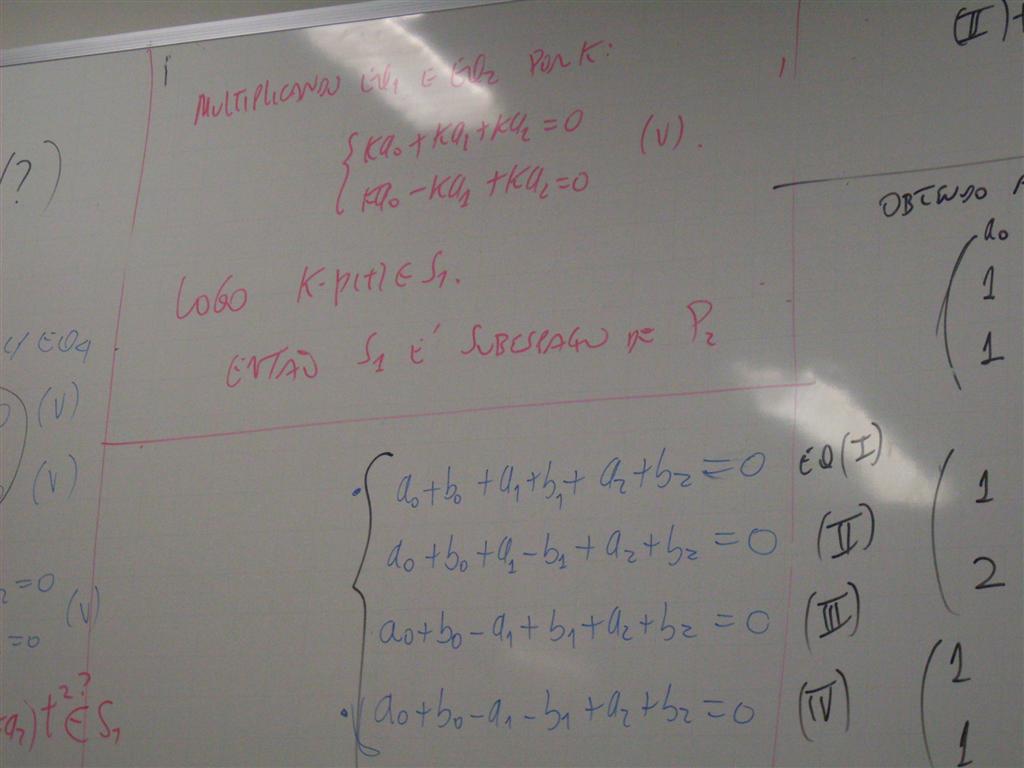 (II)+
MULTIPLICANDO EQ1 E EQ2 POR K:
Ka0+Ka1+Ka2=0
(V).
Ka0-Ka1+Ka2=0
?)
OBTENDO
LOGO K·p(t)∈S1.
ENTÃO S1 É SUBESPAÇO DE P2
a0
1
1
EQ4
(V)
(V)
a0+b0+a1+b1+a2+b2=0 EQ(I)
a0+b0+a1-b1+a2+b2=0 (II)
a0+b0-a1+b1+a2+b2=0 (III)
a0+b0-a1-b1+a2+b2=0 (IV)
1
2
1
1
2=0
(V)
=0
a2)t² ?∈ S1